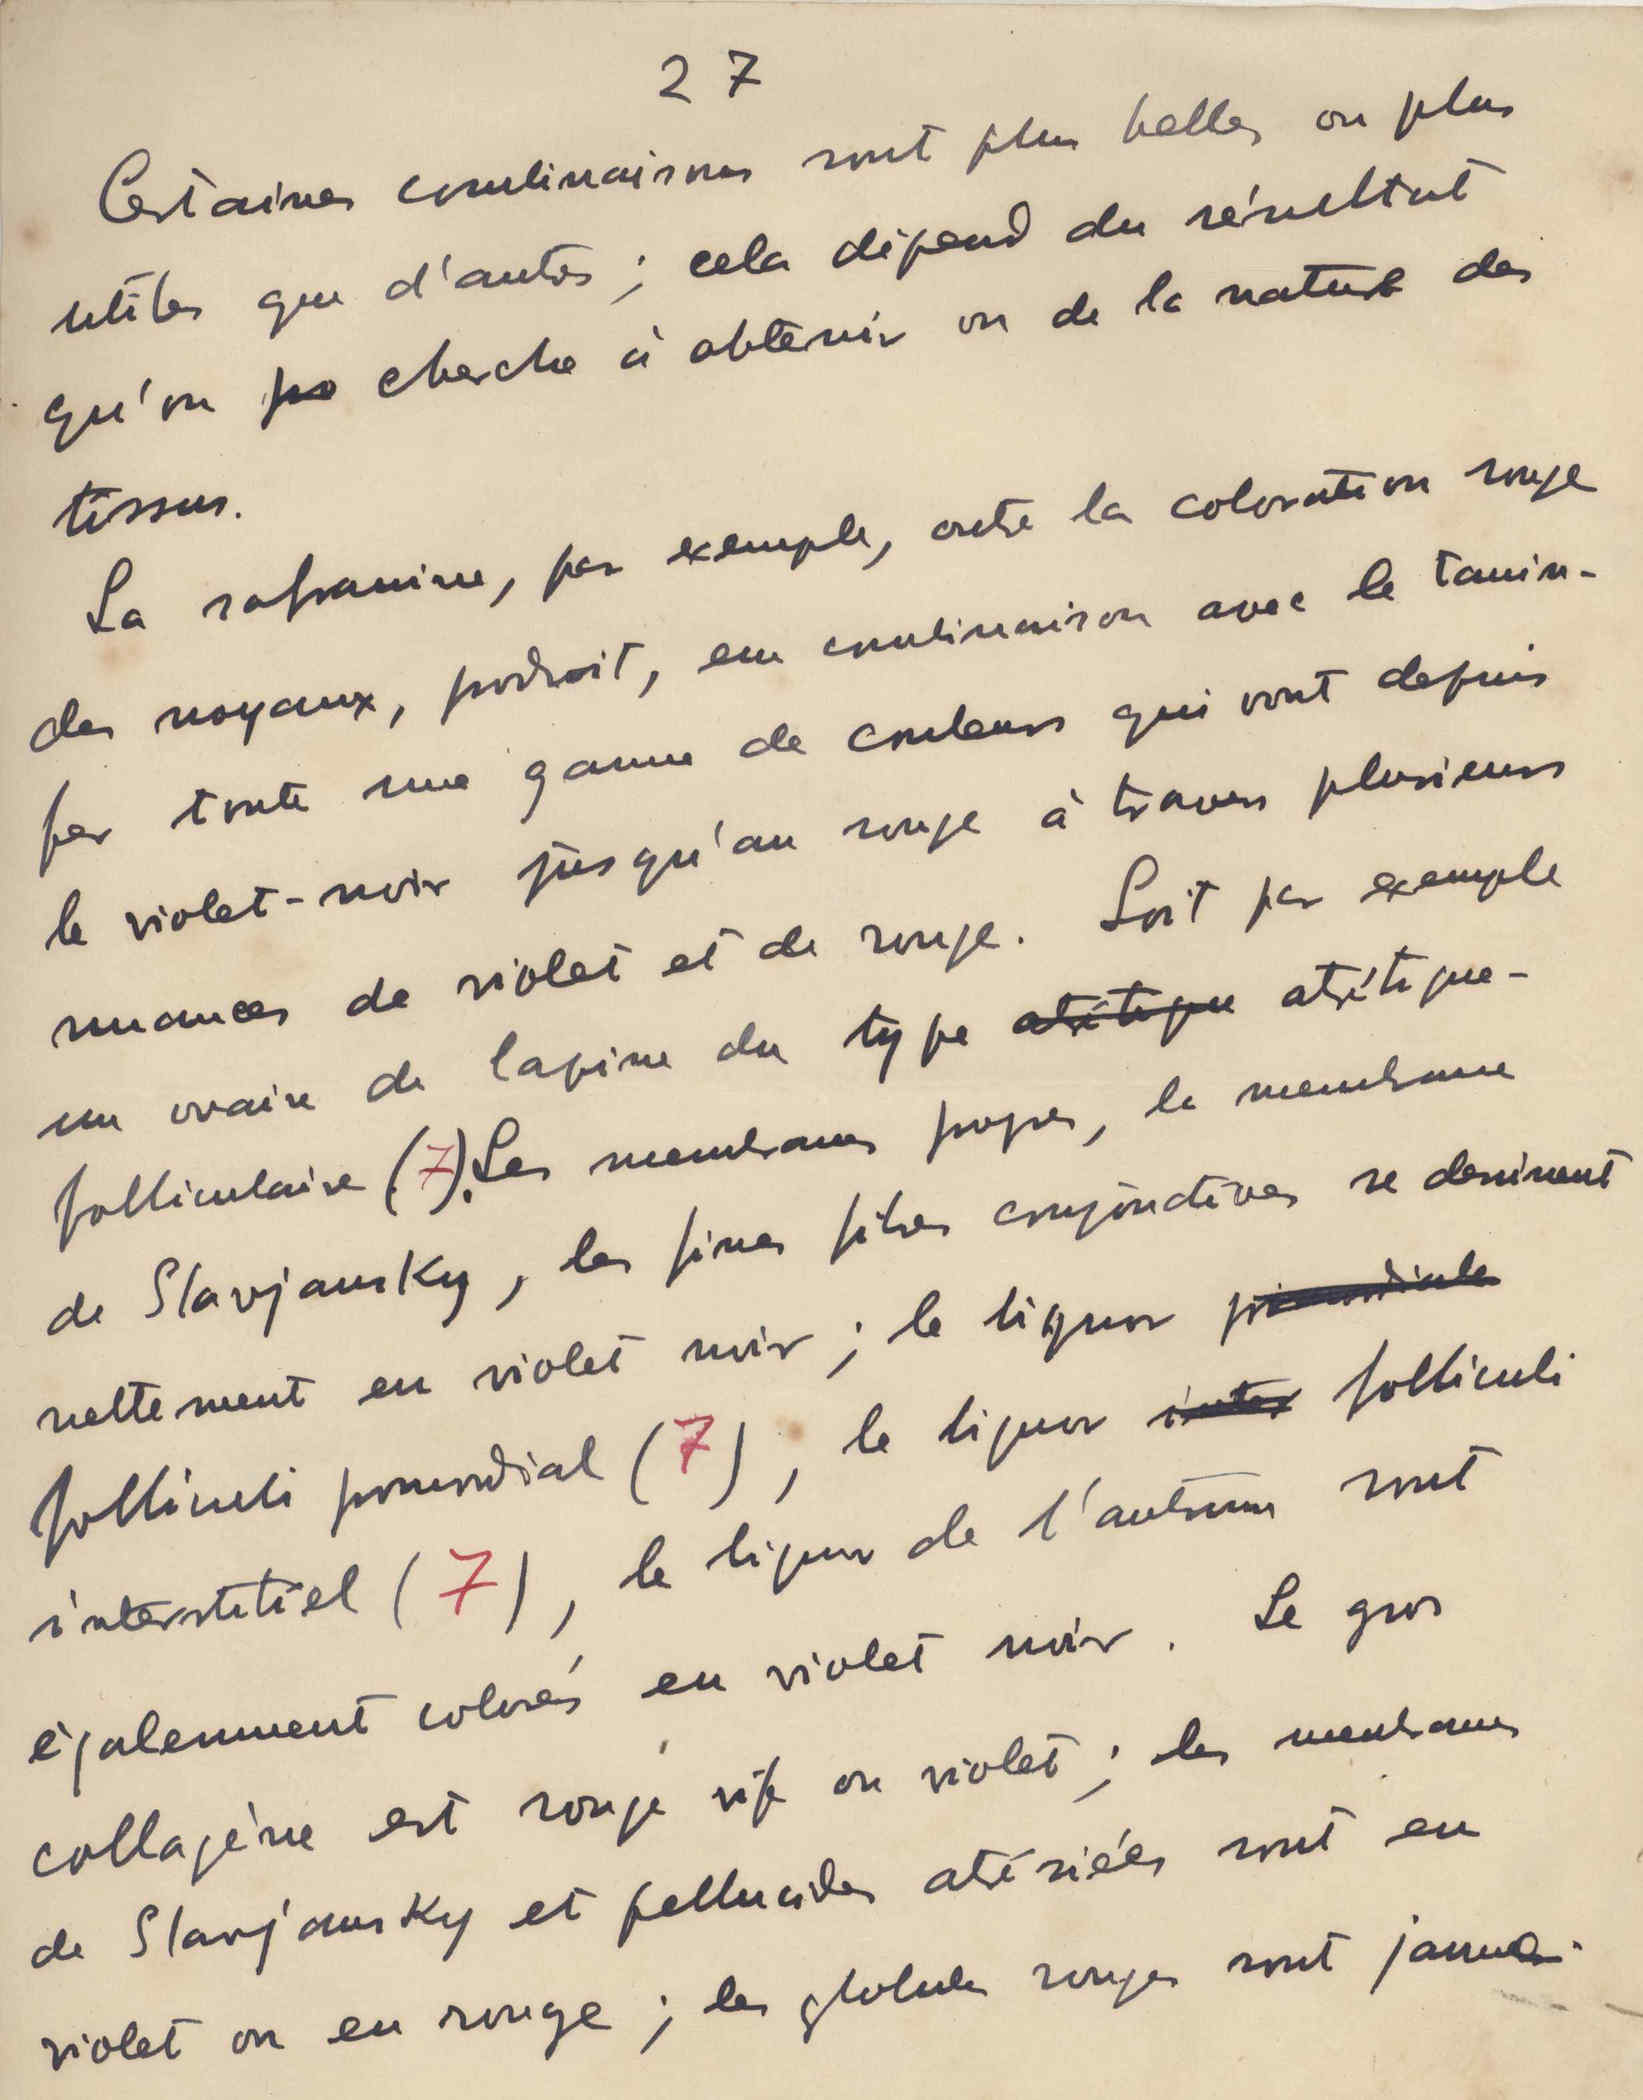 27
Certaines combinaisons sont plus belles ou plus
utiles que d'autres ; cela dépend du résultat
qu'on po cherche à obtenir ou de la nature des
tissus.
La safranine, par exemple, outre la coloration rouge
des noyaux, produit, en combinaison avec le tanin-
fer toute une gamme de couleurs qui vont depuis
le violet-noir jusqu'au rouge à travers plusieurs
nuances de violet et de rouge. Soit par exemple
un ovaire de lapine du type atrétique atrétique-
folliculaire (7). Les membranes propres, la membrane
de Slavjansky, les fines fibres conjonctives se dessinent
nettement en violet noir ; le liquor primordiale
folliculi primordial (7), le liquor inter folliculi
interstitiel (7), le liquor de l'antrum sont
également colorés en violet noir. Le gros
collagène est rouge vif ou violet ; les membranes
de Slavjansky et pellucides atrésiées sont en
violet ou en rouge ; les globules rouges sont jaunes.